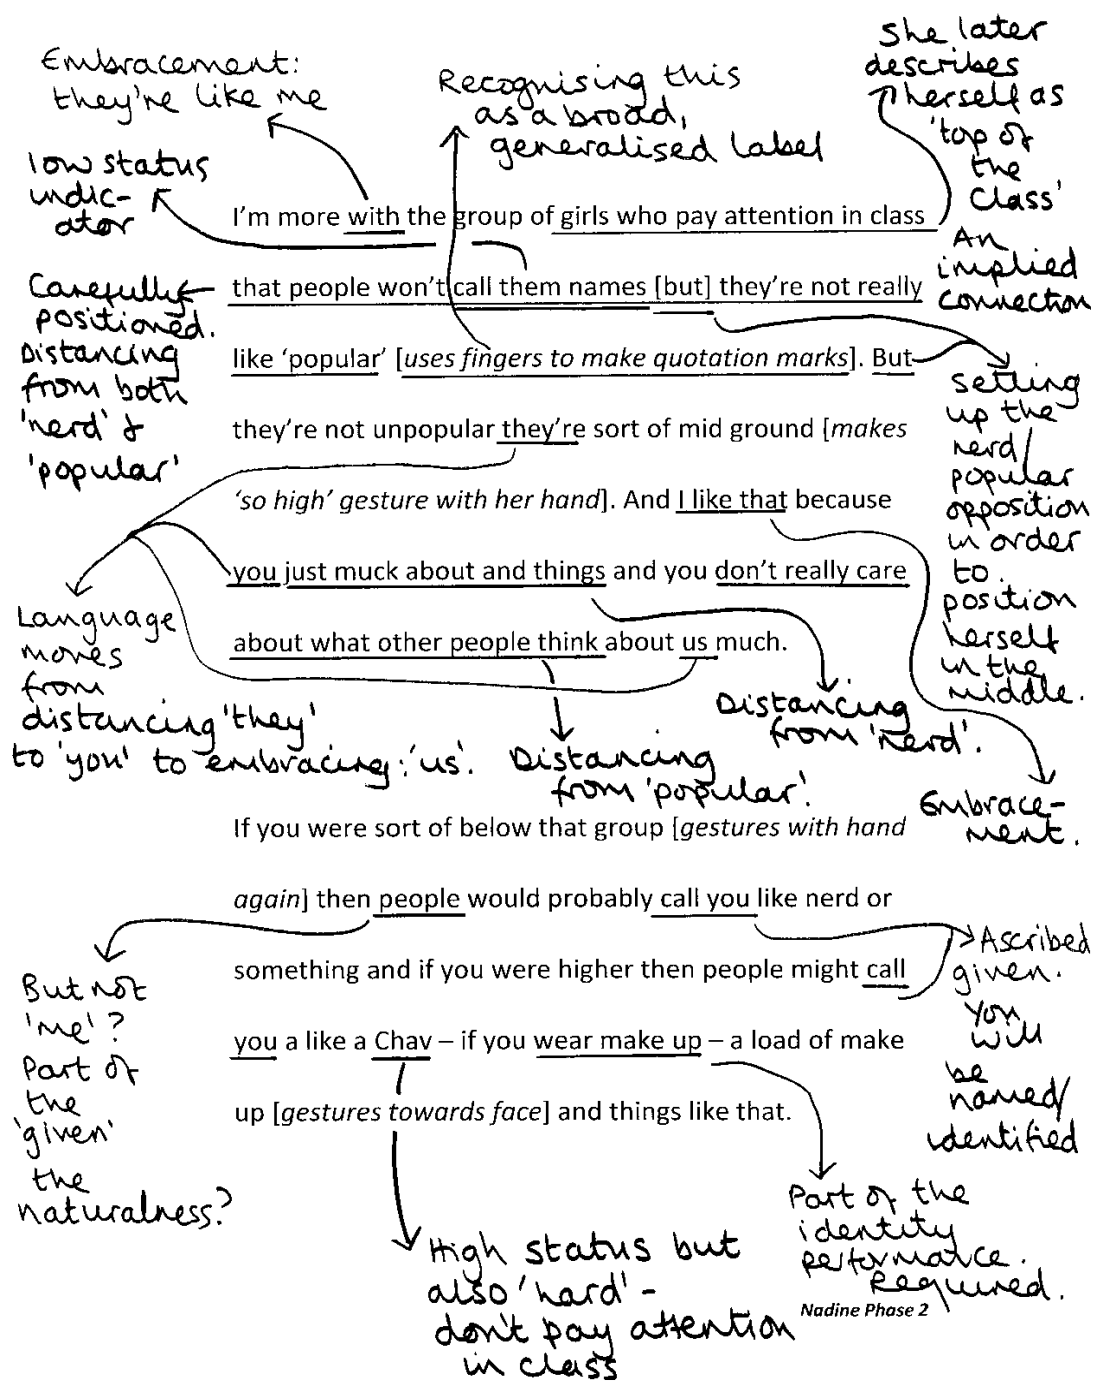 Embracement:
they're like me
Recognising this
as a broad,
generalised label
She later
describes
herself as
'top of
the
class'
low status
indic-
ator
An
implied
connection
Carefully
positioned.
Distancing
from both
'nerd' &
'popular'
I'm more with the group of girls who pay attention in class
that people won't call them names [but] they're not really
like 'popular' [uses fingers to make quotation marks]. But
they're not unpopular they're sort of mid ground [makes
'so high' gesture with her hand]. And I like that because
you just muck about and things and you don't really care
about what other people think about us much.
setting
up the
nerd/
popular
opposition
in order
to
position
herself
in the
middle.
Language
moves
from
distancing 'they'
to 'you' to embracing: 'us'.
Distancing
from 'popular'.
Distancing
from 'nerd'.
Embrace-
ment.
If you were sort of below that group [gestures with hand
again] then people would probably call you like nerd or
something and if you were higher then people might call
you a like a Chav – if you wear make up – a load of make
up [gestures towards face] and things like that.
But not
'me'?
Part of
the
'given'
the
naturalness?
Ascribed
given.
You
will
be
named/
identified
High status but
also 'hard' -
don't pay attention
in class
Part of the
identity
performance.
Required.
Nadine Phase 2